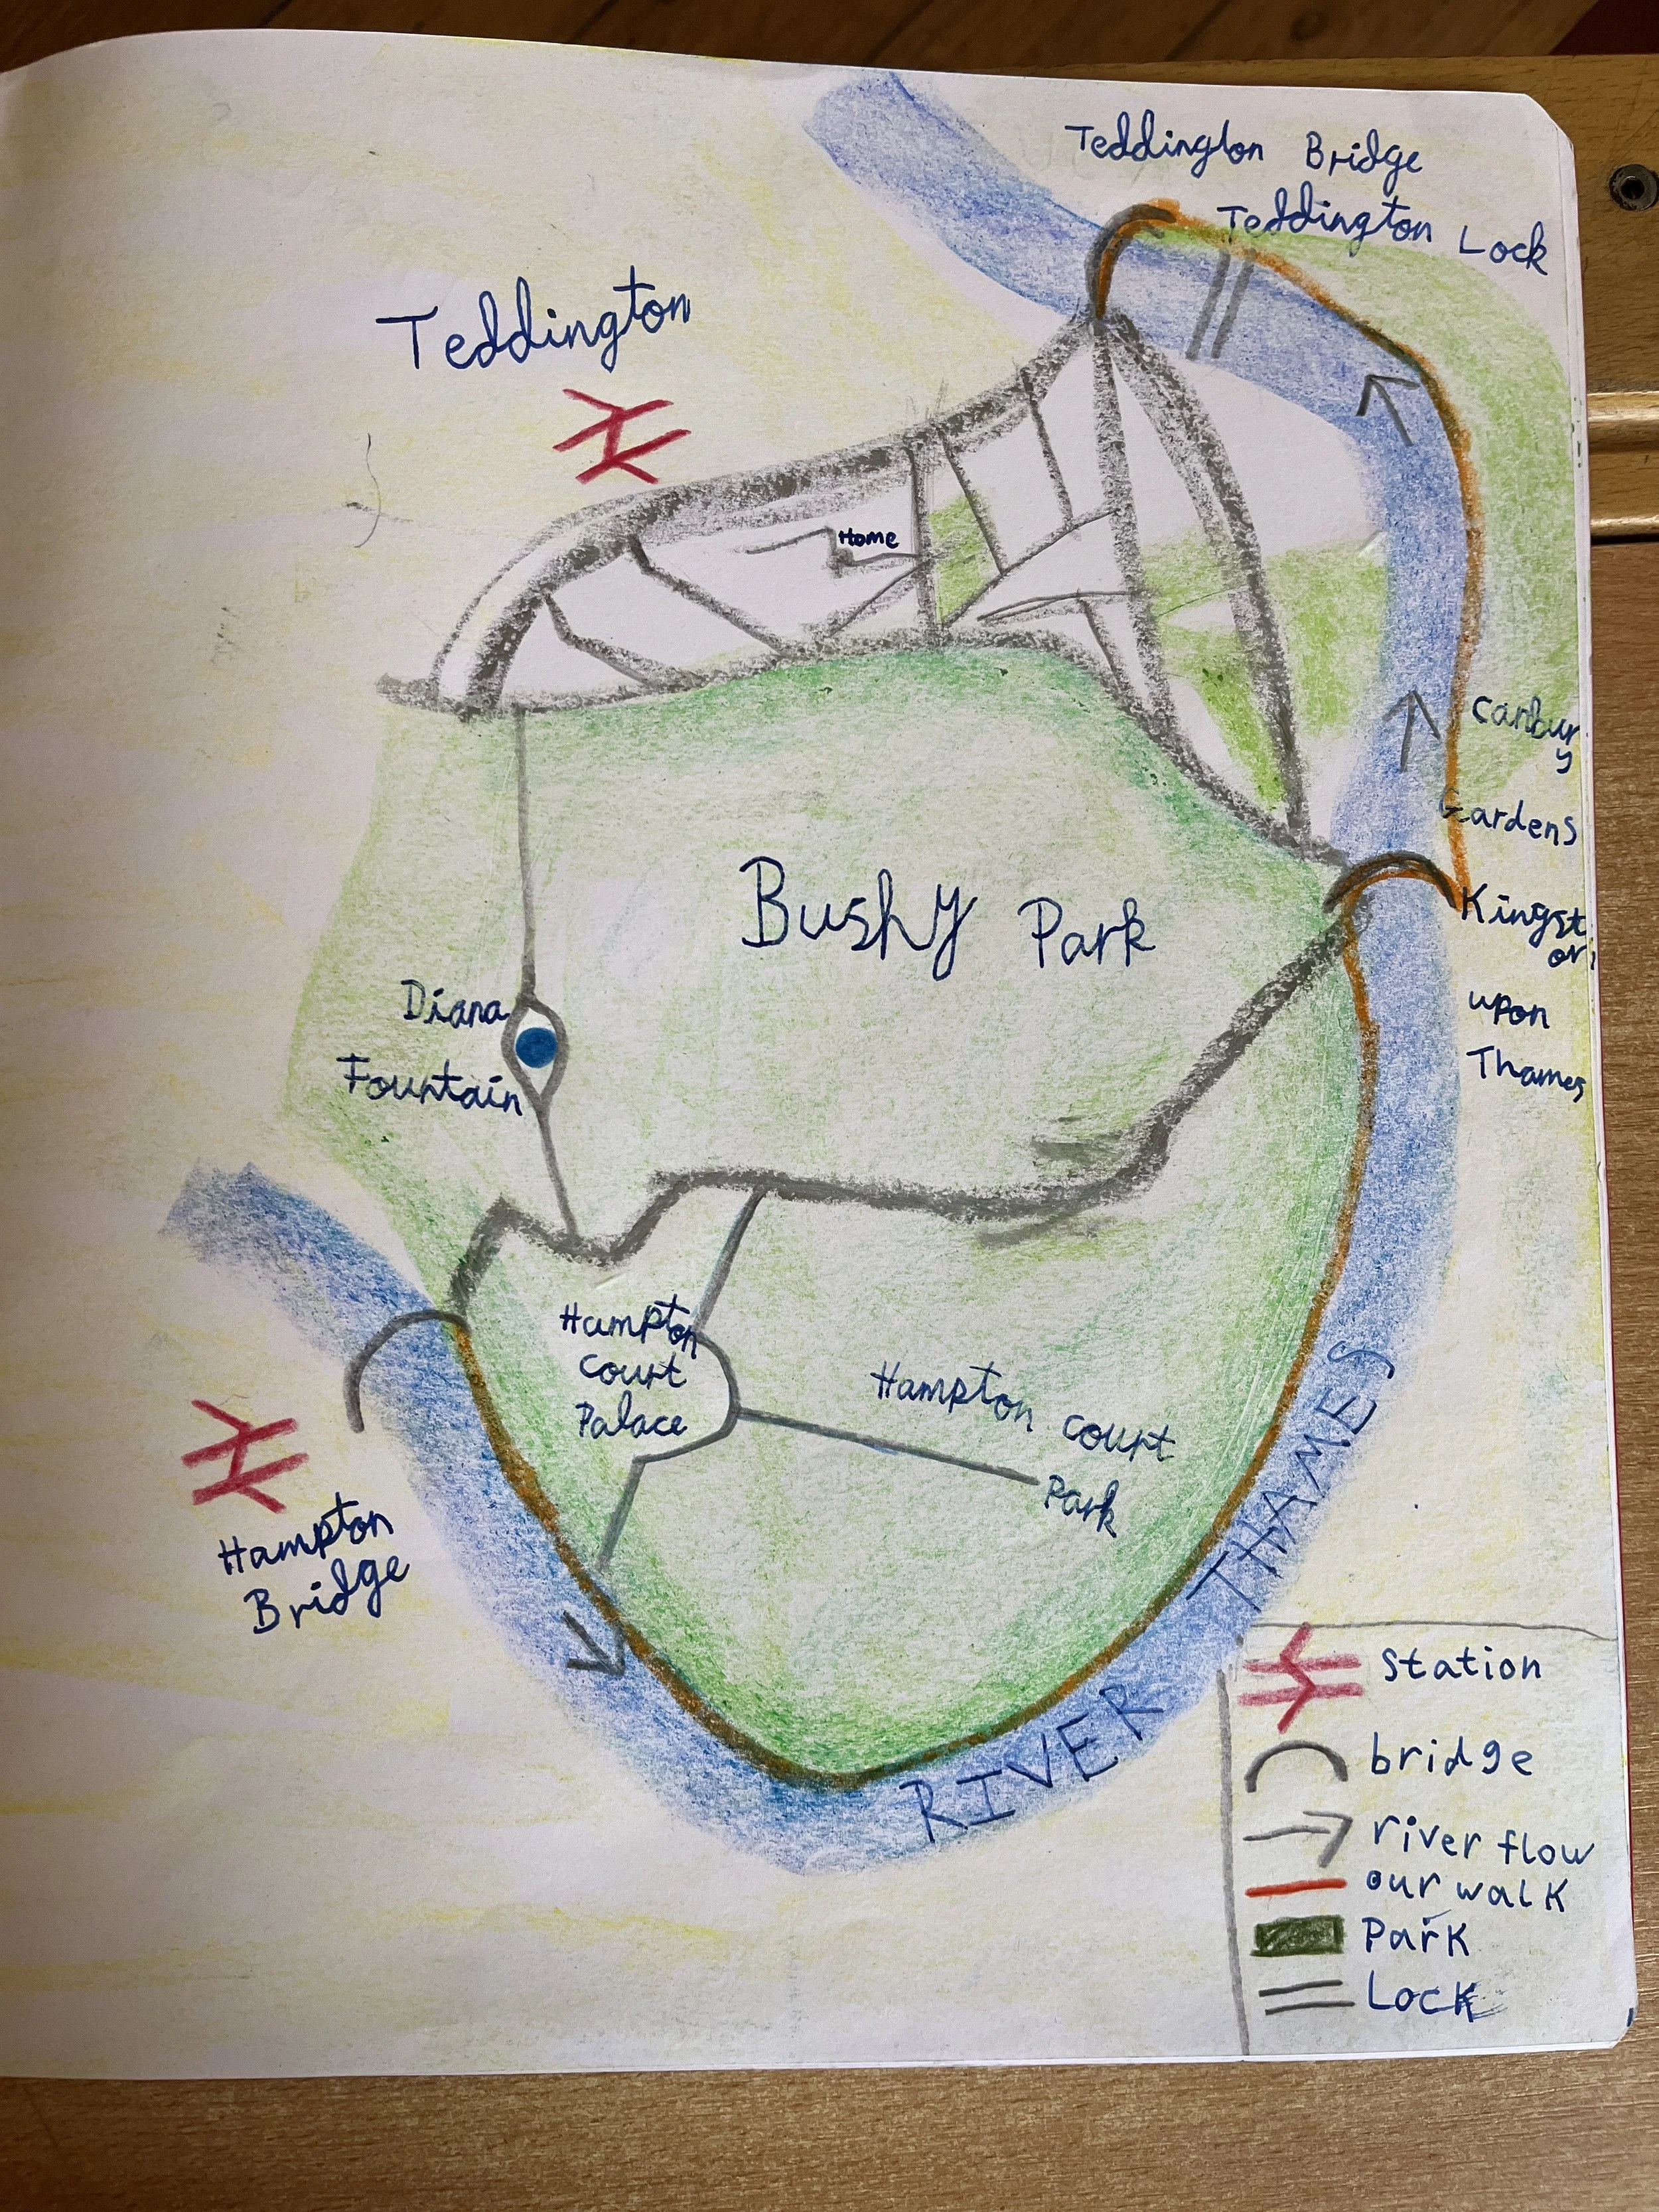 Teddington Bridge
Teddington Lock
Teddington
Home
Canbur
y
Gardens
Bushy Park
Kingst
on
upon
Thames
Diana
Fountain
Hampton
Court
Palace
Hampton Court
Park
Hampton
Bridge
RIVER THAMES
Station
bridge
river flow
our walk
Park
Lock